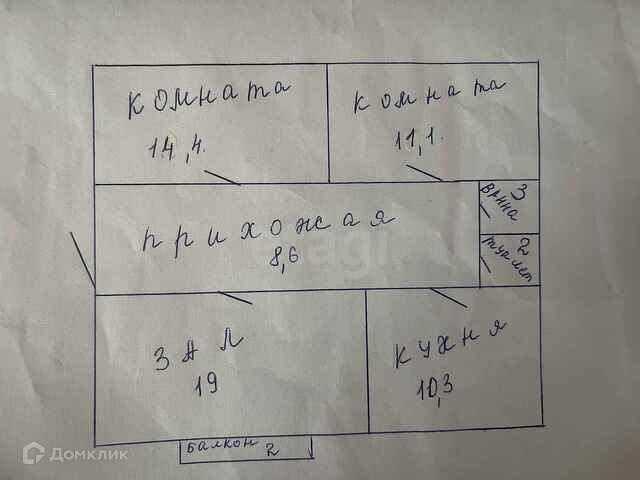 комната
14,4.
комната
11,1.
ванна
3
прихожая
8,6
туалет
2
зал
19
кухня
10,3
балкон 2
Домклик